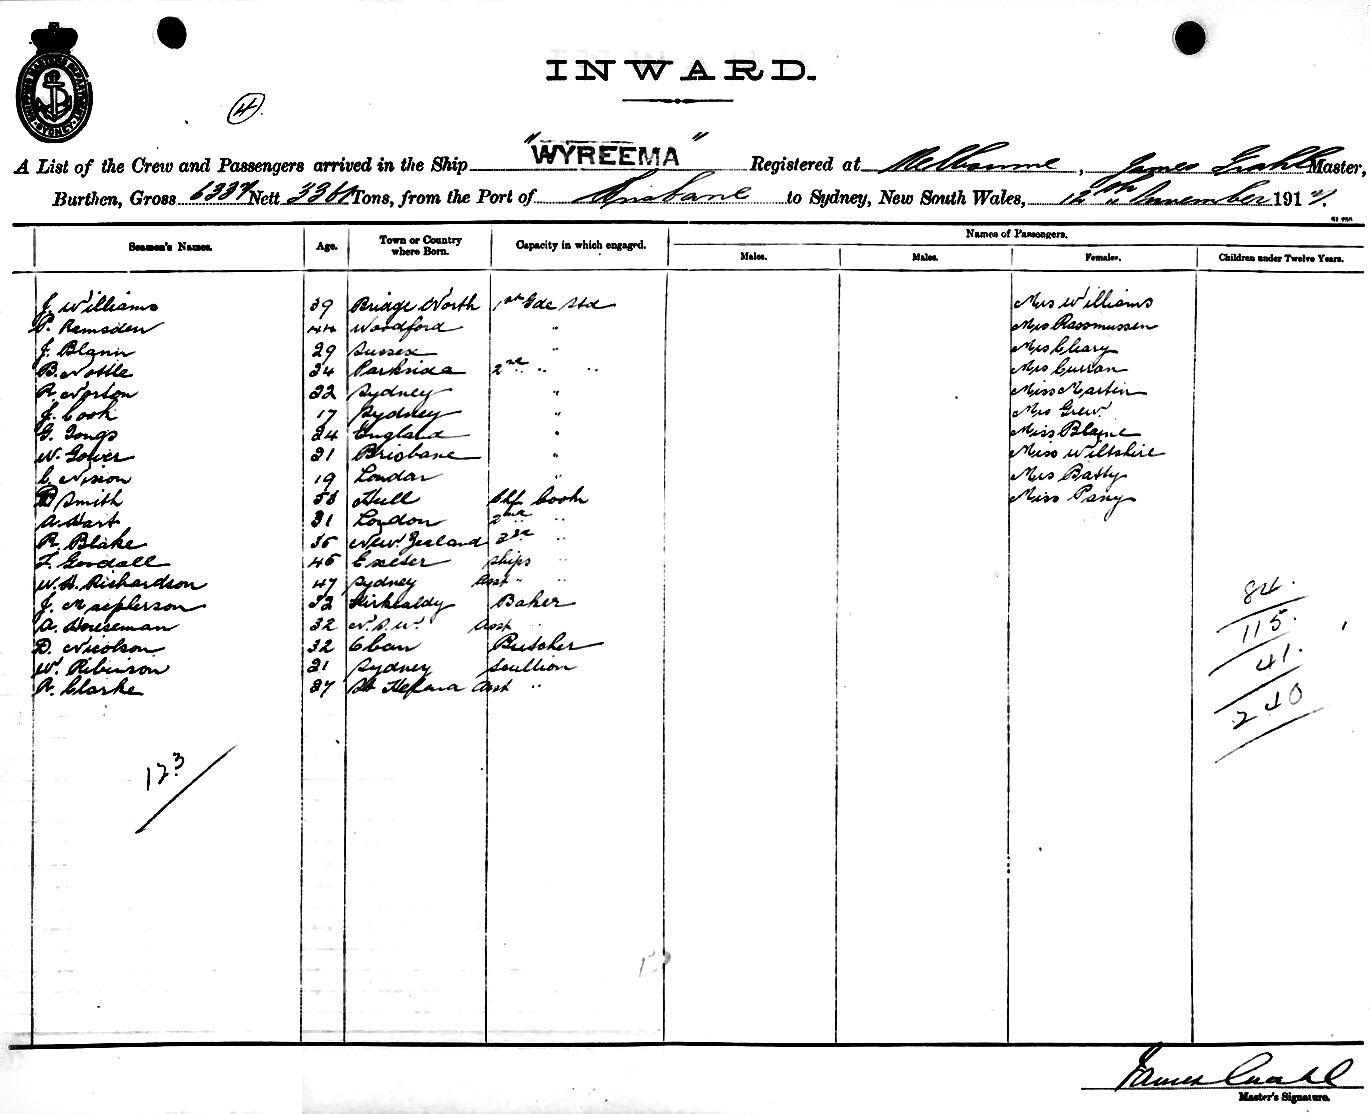 INWARD.
4
A List of the Crew and Passengers arrived in the Ship "WYREEMA" Registered at Melbourne, James Grahl Master,
Burthen, Gross 6338 Nett Tons, from the Port of Brisbane to Sydney, New South Wales, 12th November 191
Names of Passengers.
Seamen's Names. Age. Town or Country where Born. Capacity in which engaged. Males. Males. Females. Children under Twelve Years.
J. Williams 39 Bridge North 1st Gde Std Mrs Williams
P. Ramsden 44 Woodford " Mrs Rassmussen
J. Blann 29 Sussex " Mrs Cleary
B. Nottle 24 2nd " " Mrs Curran
R. Norton 22 Sydney " Miss Martin
J. Cook 17 Sydney " Mrs Grew
G. Tongs 24 England " Miss Blaine
W. Gower 21 Brisbane " Miss Wiltshire
C. Nixon 19 London " Mrs Batty
B Smith 53 Hull Chf Cook Miss Parry
A. Hart 31 London 2nd "
R. Blake 35 New Zealand 3rd "
F. Goodall 45 Exeter Ships "
W. H. Richardson 47 Sydney Asst " "
J. Macpherson 32 Kirkcaldy Baker
A. Houseman 32 N.S.W. Asst "
D. Nicolson 32 Oban Butcher
W. Robinson 21 Sydney Scullion
R. Clarke 27 St Helena Asst "
84.
115.
41.
240
123
James Grahl
Master's Signature.